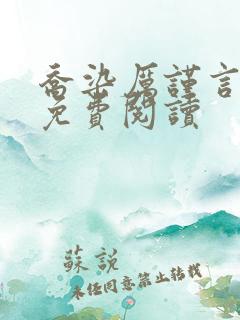 喬染厲謹言
免費閱讀
蘇說
未經同意禁止轉載